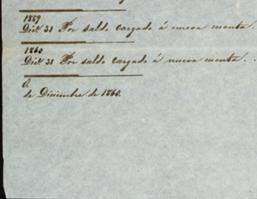 1859
Dic.e 31 Por saldo cargado á nueva cuenta.
1860
Dic.e 31 Por saldo cargado á nueva cuenta. .
de Diciembre de 1860.